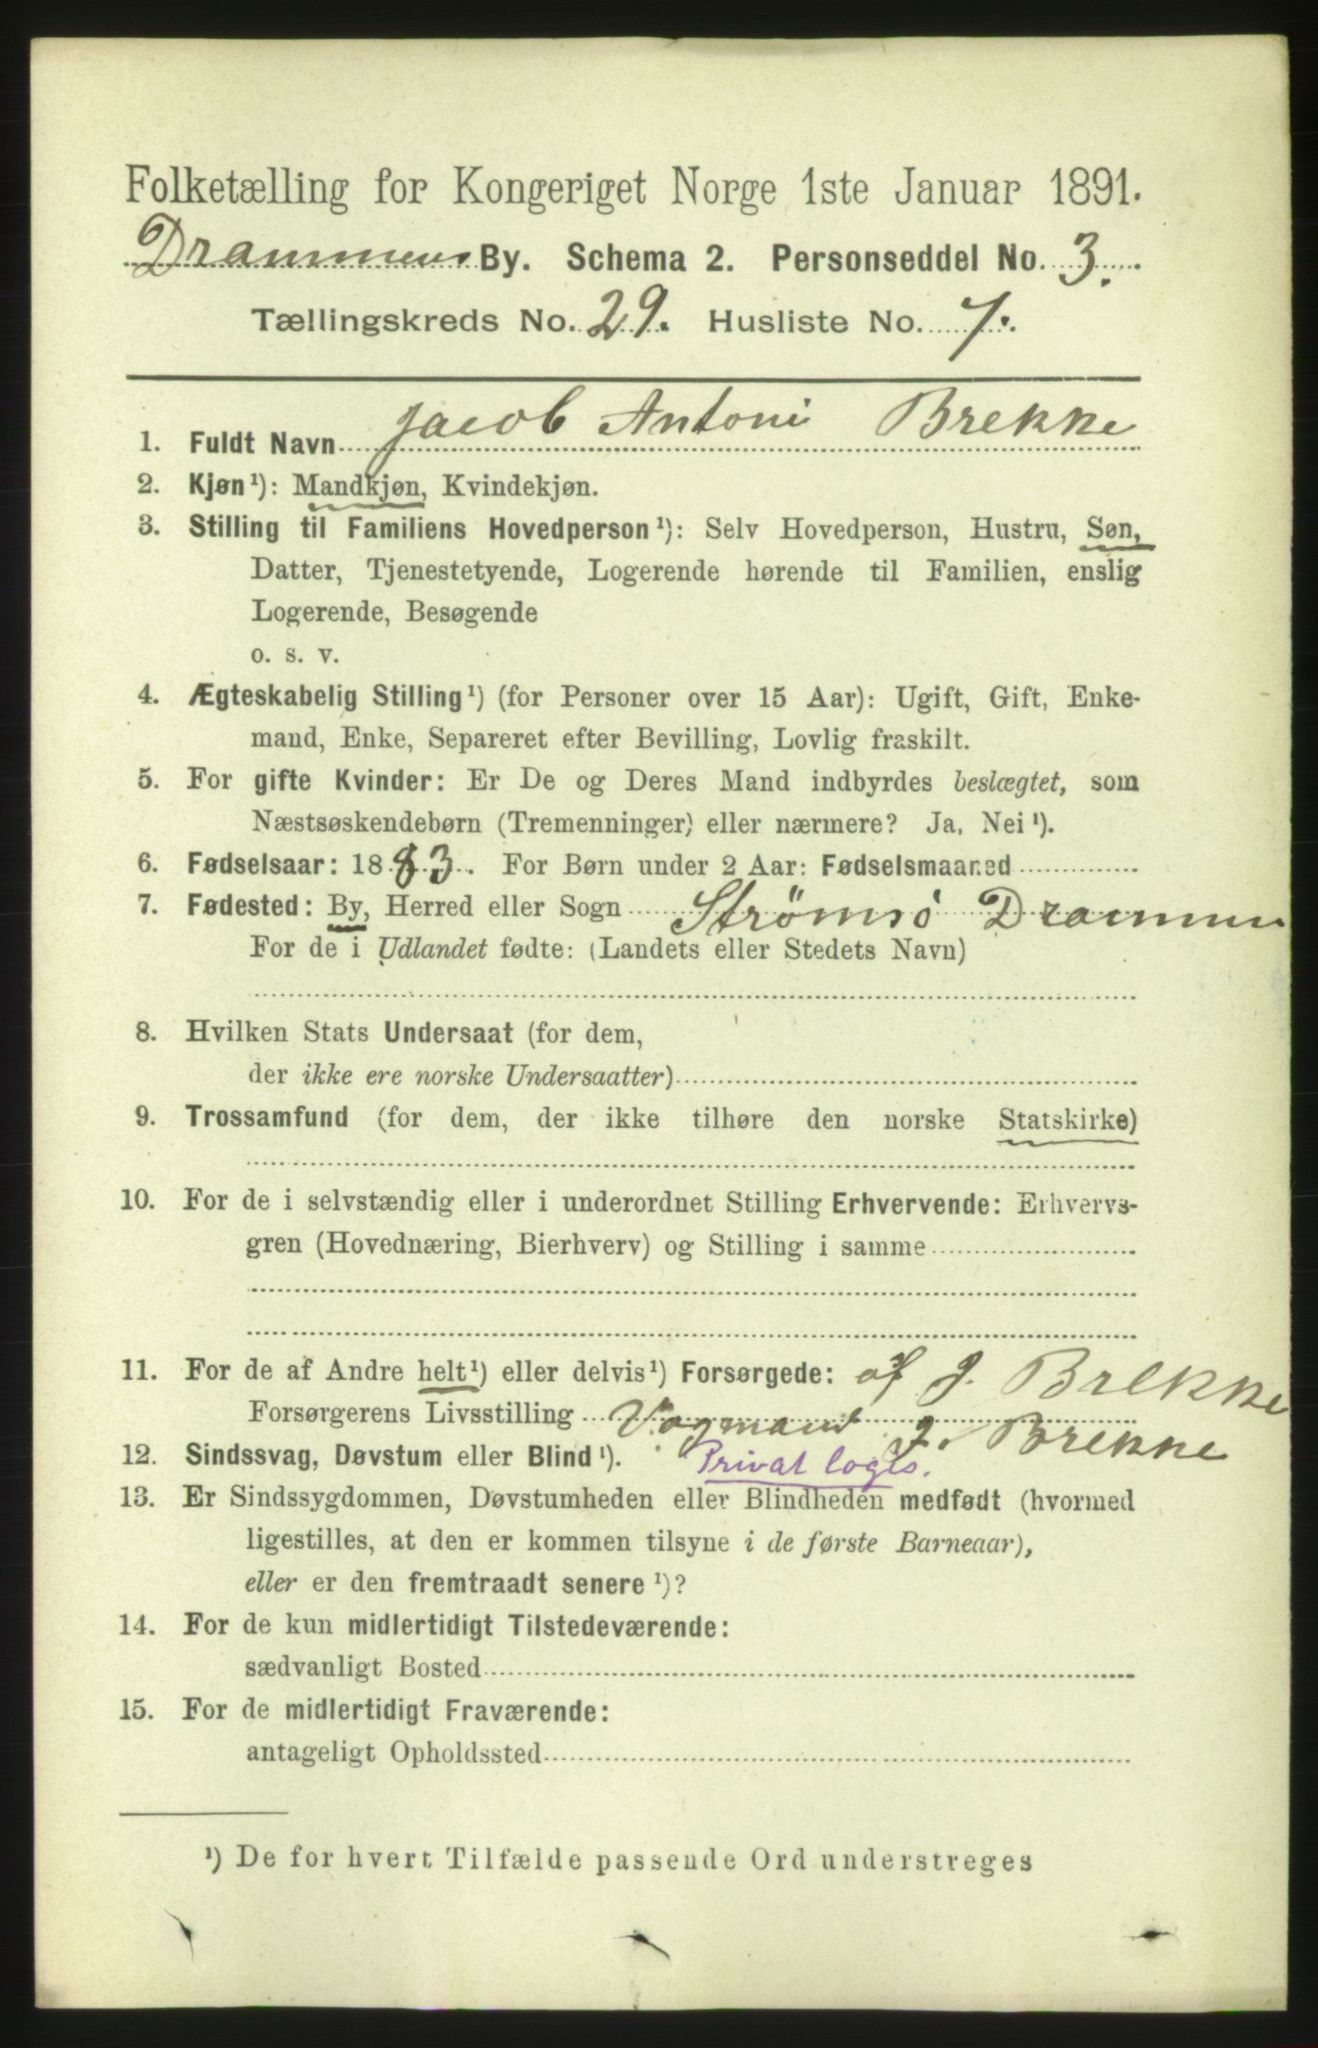 Folketælling for Kongeriget Norge 1ste Januar 1891.
Drammens By. Schema 2. Personseddel No. 3.
Tællingskreds No. 29. Husliste No. 7.
1. Fuldt Navn Jacob Antoni Brekke
2. Kjøn ¹): Mandkjøn, Kvindekjøn.
3. Stilling til Familiens Hovedperson ¹): Selv Hovedperson, Hustru, Søn,
Datter, Tjenestetyende, Logerende hørende til Familien, enslig
Logerende, Besøgende
o. s. v.
4. Ægteskabelig Stilling ¹) (for Personer over 15 Aar): Ugift, Gift, Enke-
mand, Enke, Separeret efter Bevilling, Lovlig fraskilt.
5. For gifte Kvinder: Er De og Deres Mand indbyrdes beslægtet, som
Næstsøskendebørn (Tremenninger) eller nærmere? Ja, Nei ¹).
6. Fødselsaar: 1883. For Børn under 2 Aar: Fødselsmaaned
7. Fødested: By, Herred eller Sogn Strømsö Drammen
For de i Udlandet fødte: (Landets eller Stedets Navn)
8. Hvilken Stats Undersaat (for dem,
der ikke ere norske Undersaatter)
9. Trossamfund (for dem, der ikke tilhøre den norske Statskirke)
10. For de i selvstændig eller i underordnet Stilling Erhvervende: Erhvervs-
gren (Hovednæring, Bierhverv) og Stilling i samme
11. For de af Andre helt ¹) eller delvis ¹) Forsørgede: af J. Brekke
Forsørgerens Livsstilling Vogmand J. Brekke
12. Sindssvag, Døvstum eller Blind ¹). Privat logis.
13. Er Sindssygdommen, Døvstumheden eller Blindheden medfødt (hvormed
ligestilles, at den er kommen tilsyne i de første Barneaar),
eller er den fremtraadt senere ¹)?
14. For de kun midlertidigt Tilstedeværende:
sædvanligt Bosted
15. For de midlertidigt Fraværende:
antageligt Opholdssted
¹) De for hvert Tilfælde passende Ord understreges